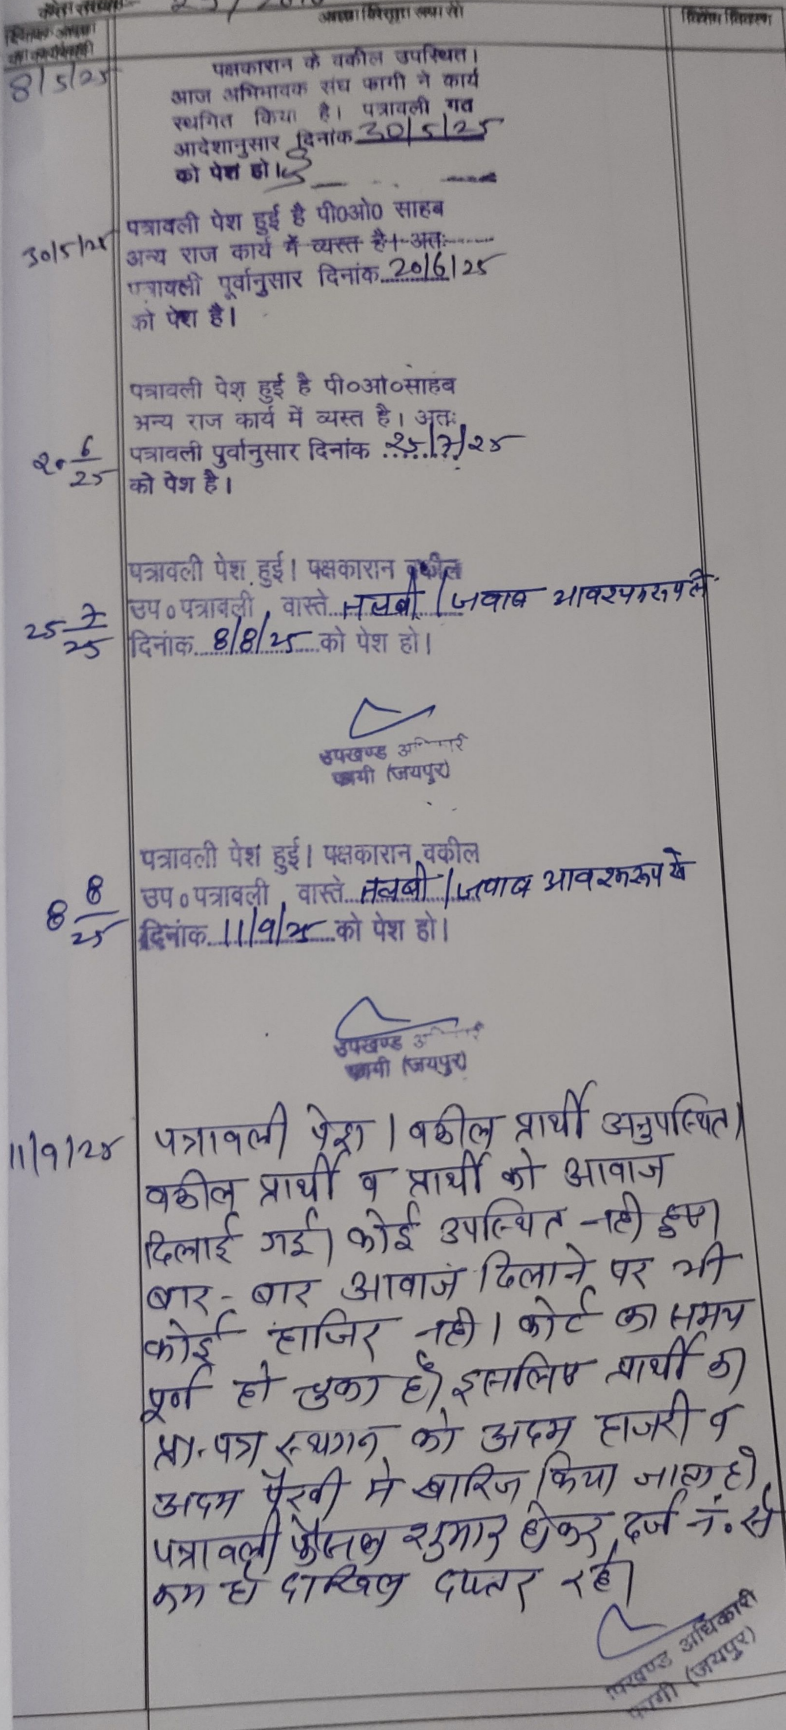 आज्ञा विस्तृत रूप से
विशेष विवरण
8/5/25
पक्षकारान के वकील उपस्थित।
आज अभिभावक संघ फागी ने कार्य
स्थगित किया है। पत्रावली गत
आदेशानुसार दिनांक 30/5/25
को पेश हो।
30/5/25
पत्रावली पेश हुई है पी0ओ0 साहब
अन्य राज कार्य में व्यस्त है। अतः
पत्रावली पूर्वानुसार दिनांक 20/6/25
को पेश है।
पत्रावली पेश हुई है पी०ओ०साहब
अन्य राज कार्य में व्यस्त है। अतः
20 6/25
पत्रावली पुर्वानुसार दिनांक 25/7/25
को पेश है।
पत्रावली पेश हुई। पक्षकारान वकील
25 7/25
उप०पत्रावली, वास्ते तलबी/जवाब आवश्यक रूप से
दिनांक 8/8/25 को पेश हो।
उपखण्ड अधिकारी
फागी (जयपुर)
पत्रावली पेश हुई। पक्षकारान वकील
8 8/25
उप०पत्रावली, वास्ते तलबी/जवाब आवश्यक रूप से
दिनांक 11/9/25 को पेश हो।
उपखण्ड अ
फागी (जयपुर)
11/9/25
पत्रावली पेश। वकील प्रार्थी अनुपस्थित।
वकील प्रार्थी व प्रार्थी को आवाज
दिलाई गई। कोई उपस्थित नही हुए।
बार-बार आवाज दिलाने पर भी
कोई हाजिर नही। कोर्ट का समय
पूर्ण हो चुका है। इसलिए प्रार्थी का
प्रा.पत्र स्थगन को अदम हाजरी व
अदम पैरवी मे खारिज किया जाता है।
पत्रावली फैसल शुमार होकर दर्ज नं. से
कम हो दाखिल दफ्तर रहे।
उपखण्ड अधिकारी
फागी (जयपुर)